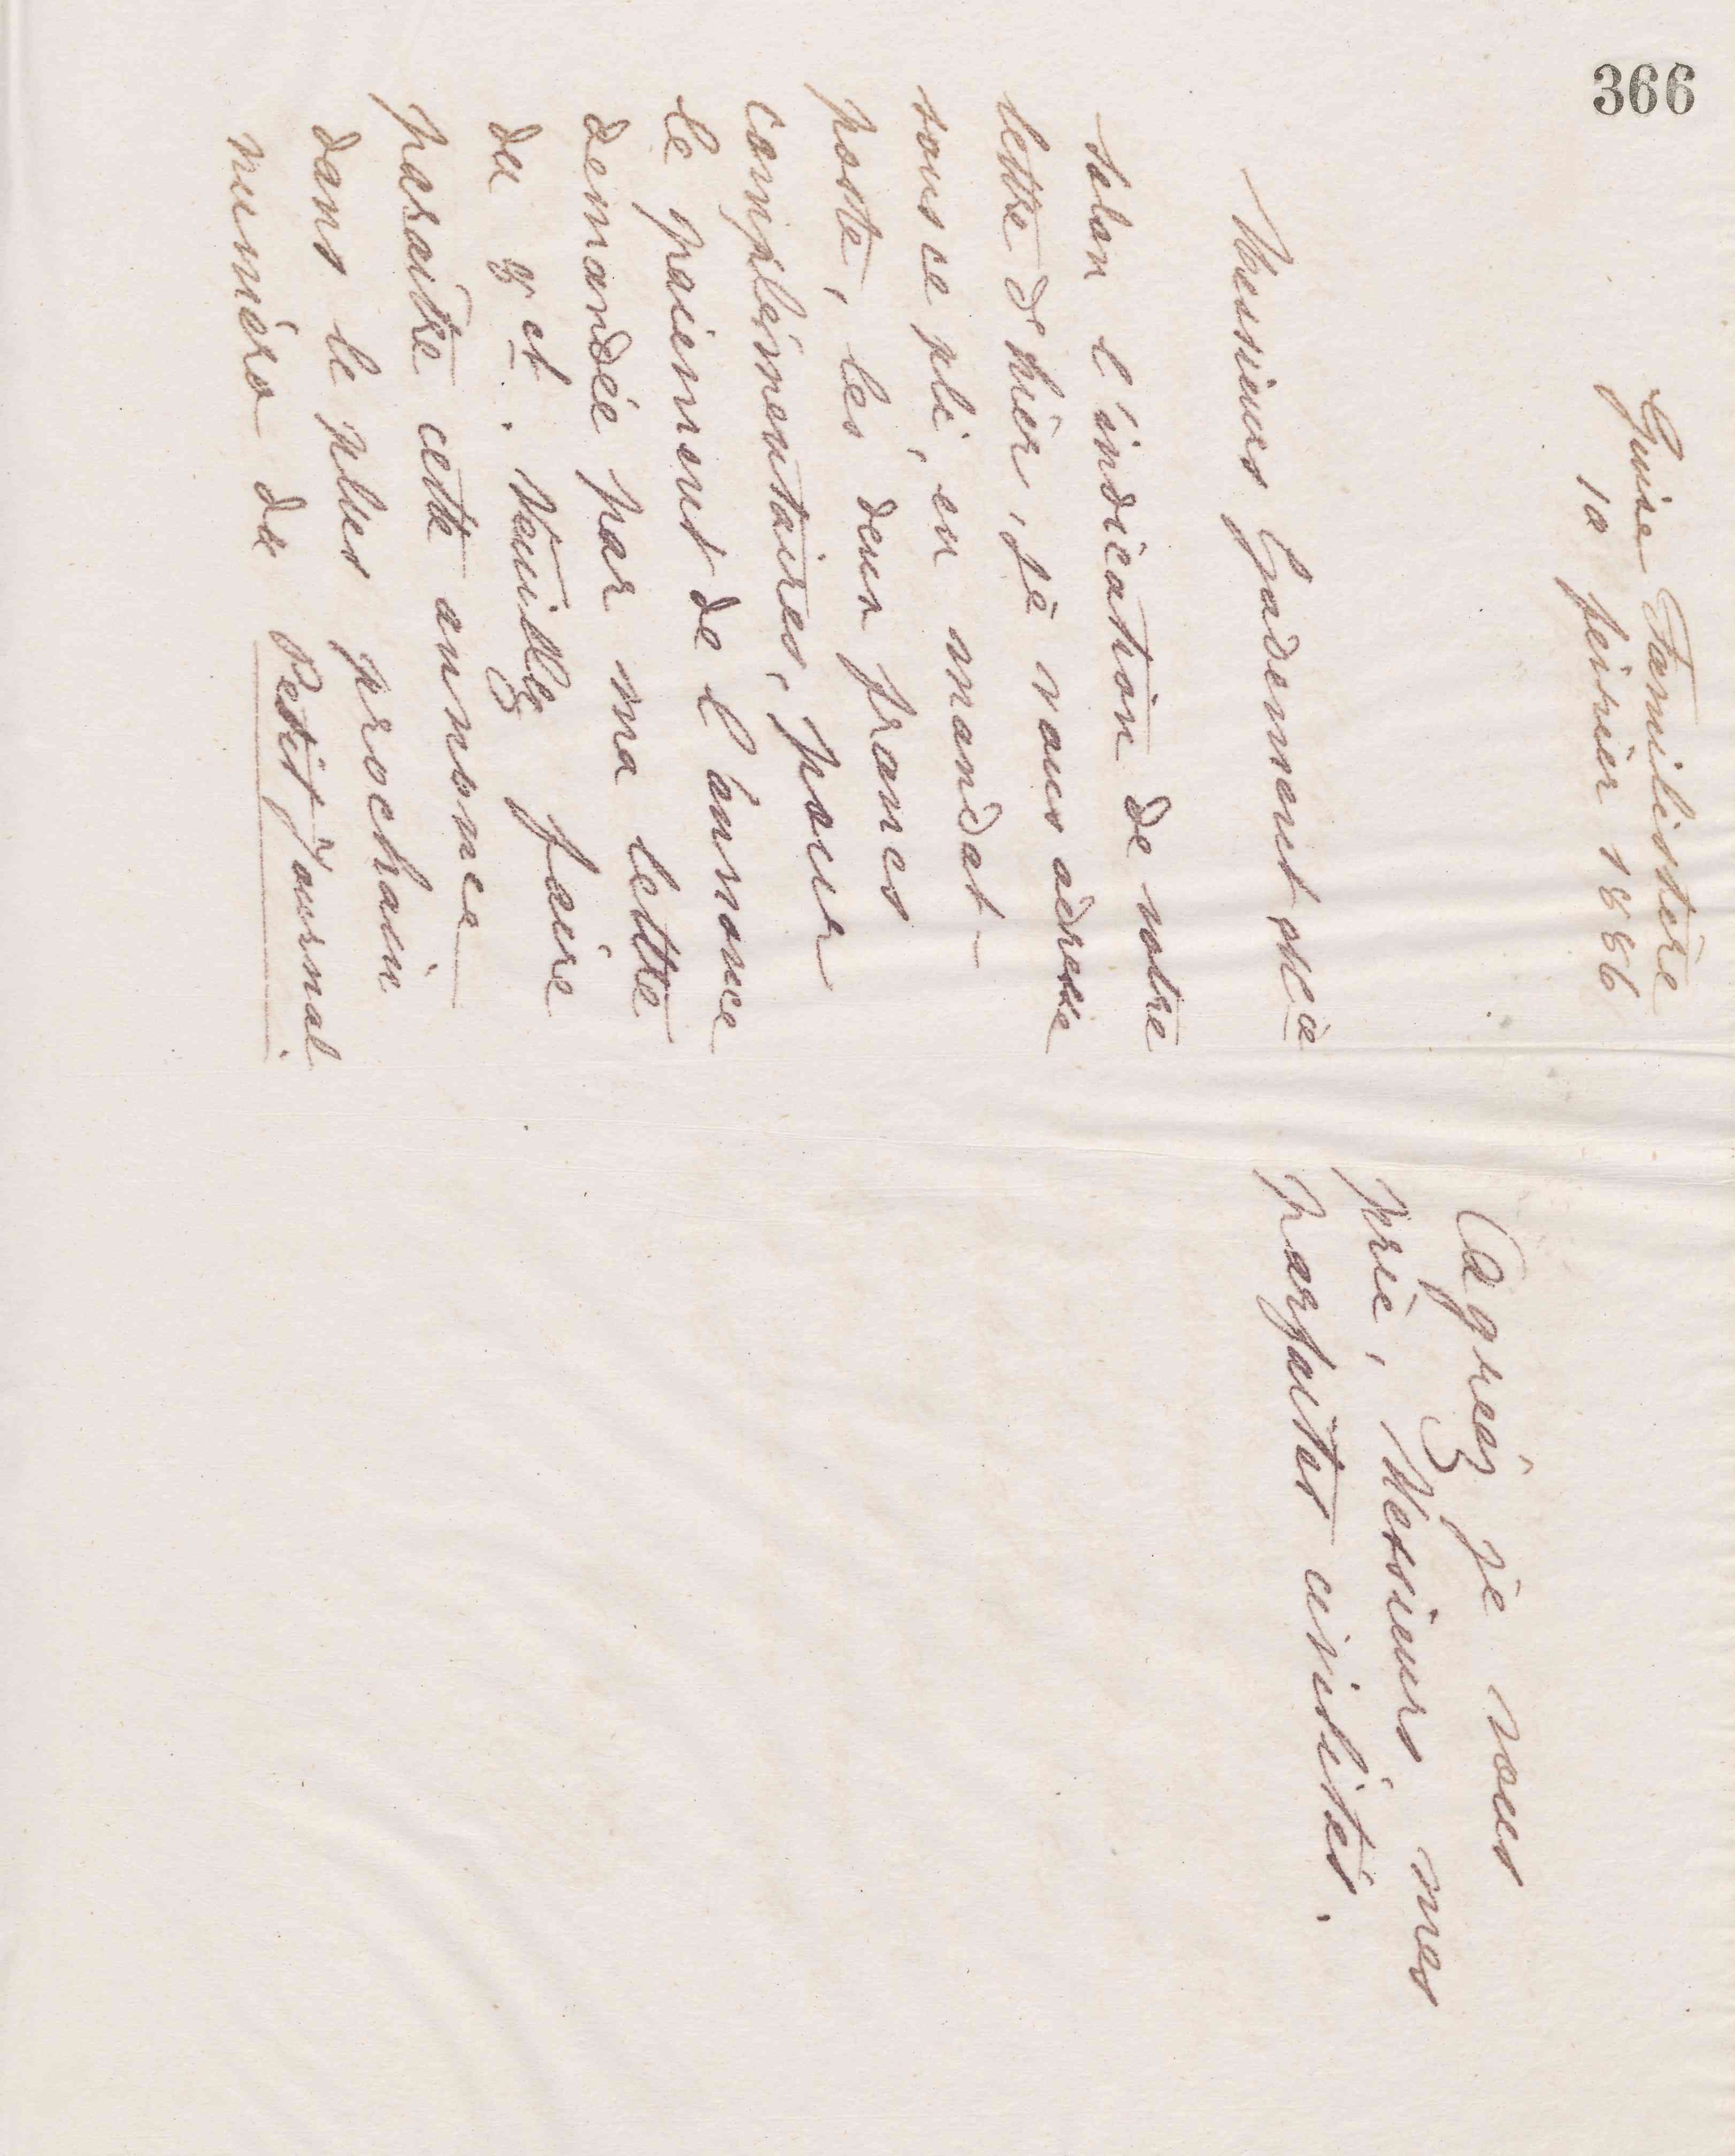 366
Guise Familistère
10 février 1886
Messieurs Gadement et Cie
Selon l'indication de votre
lettre d'hier, je vous adresse
sous ce pli, en mandat-
poste, les deux francs
complémentaires, pour
le paiement de l'annonce
demandée par ma lettre
du 8 ct. Veuillez faire
paraître cette annonce
dans le plus prochain
numéro du Petit Journal.
Agréez je vous
prie, Messieurs, mes
parfaites civilités.